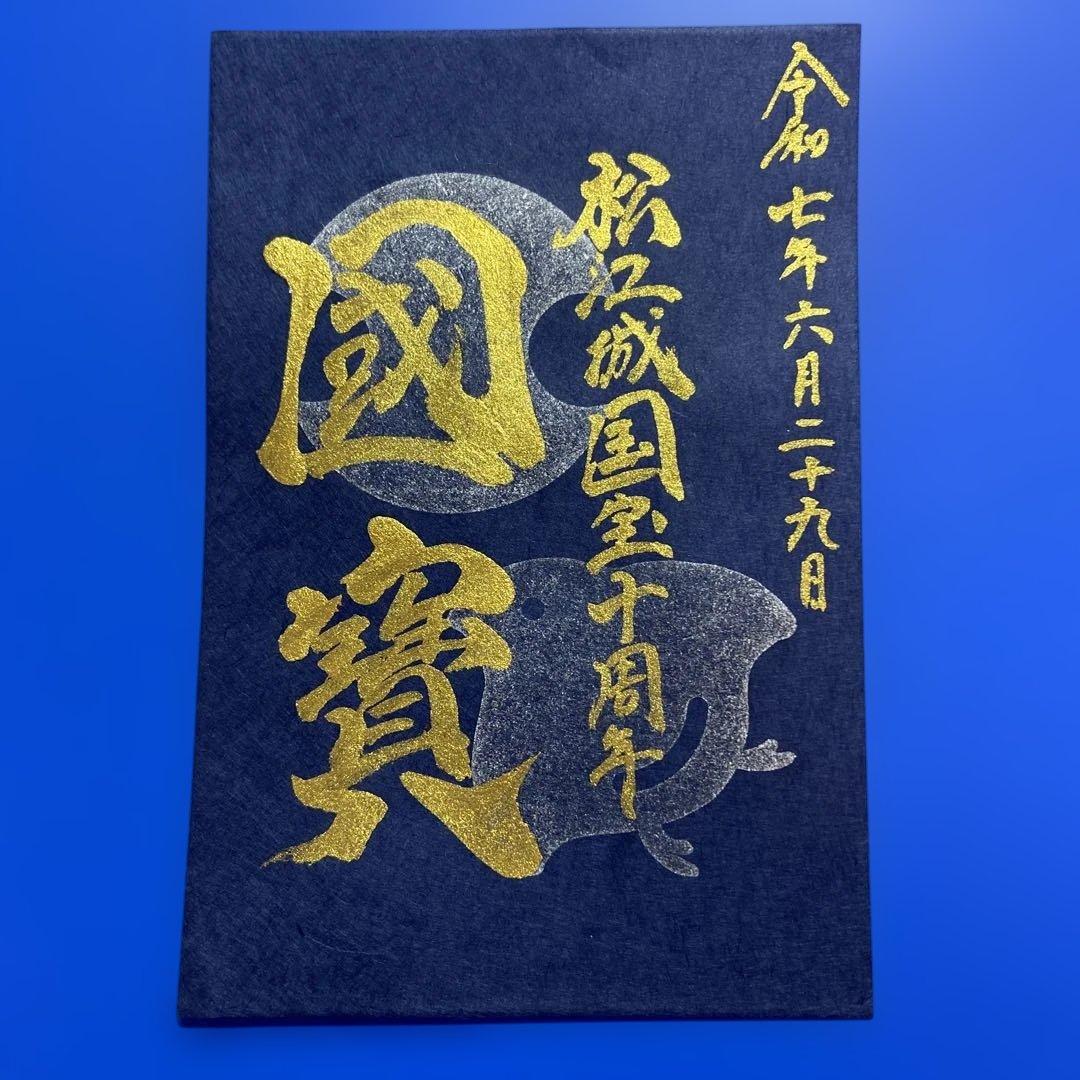 令和七年六月二十九日
松江城国宝十周年
國寶